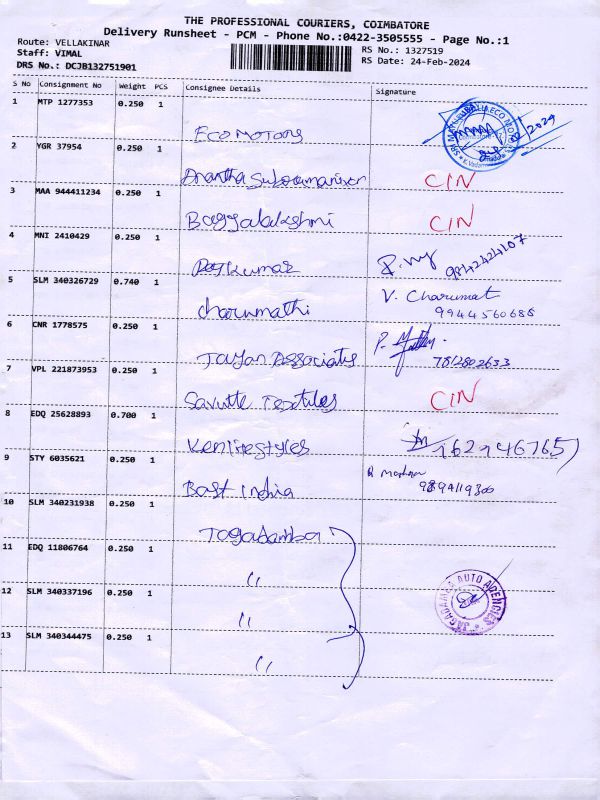 THE PROFESSIONAL COURIERS, COIMBATORE
Delivery Runsheet - PCM - Phone No.:0422-3505555 - Page No.:1
Route: VELLAKINAR
RS No.: 1327519
Staff: VIMAL
RS Date: 24-Feb-2024
DRS No.: DCJB132751901
S No Consignment No Weight PCS Consignee Details Signature
1 MTP 1277353 0.250 1 ECO MOTORS
2 YGR 37954 0.250 1 Anantha Subramanian CIN
3 MAA 944411234 0.250 1 Bagyalakshmi CIN
4 MNI 2410429 0.250 1 Raj Kumar 9842424107
5 SLM 340326729 0.740 1 charumathi V. Charumat 9944560686
6 CNR 1778575 0.250 1 Jayan Associates 7812802633
7 VPL 221873953 0.250 1 Savitte Textiles CIN
8 EDQ 25628893 0.700 1 Kenlifestyles
9 STY 6035621 0.250 1 Bast India
10 SLM 340231938 0.250 1 Jagadamba
11 EDQ 11806764 0.250 1 "
12 SLM 340337196 0.250 1 "
13 SLM 340344475 0.250 1 "
JAGADAMBA AUTO AGENCIES